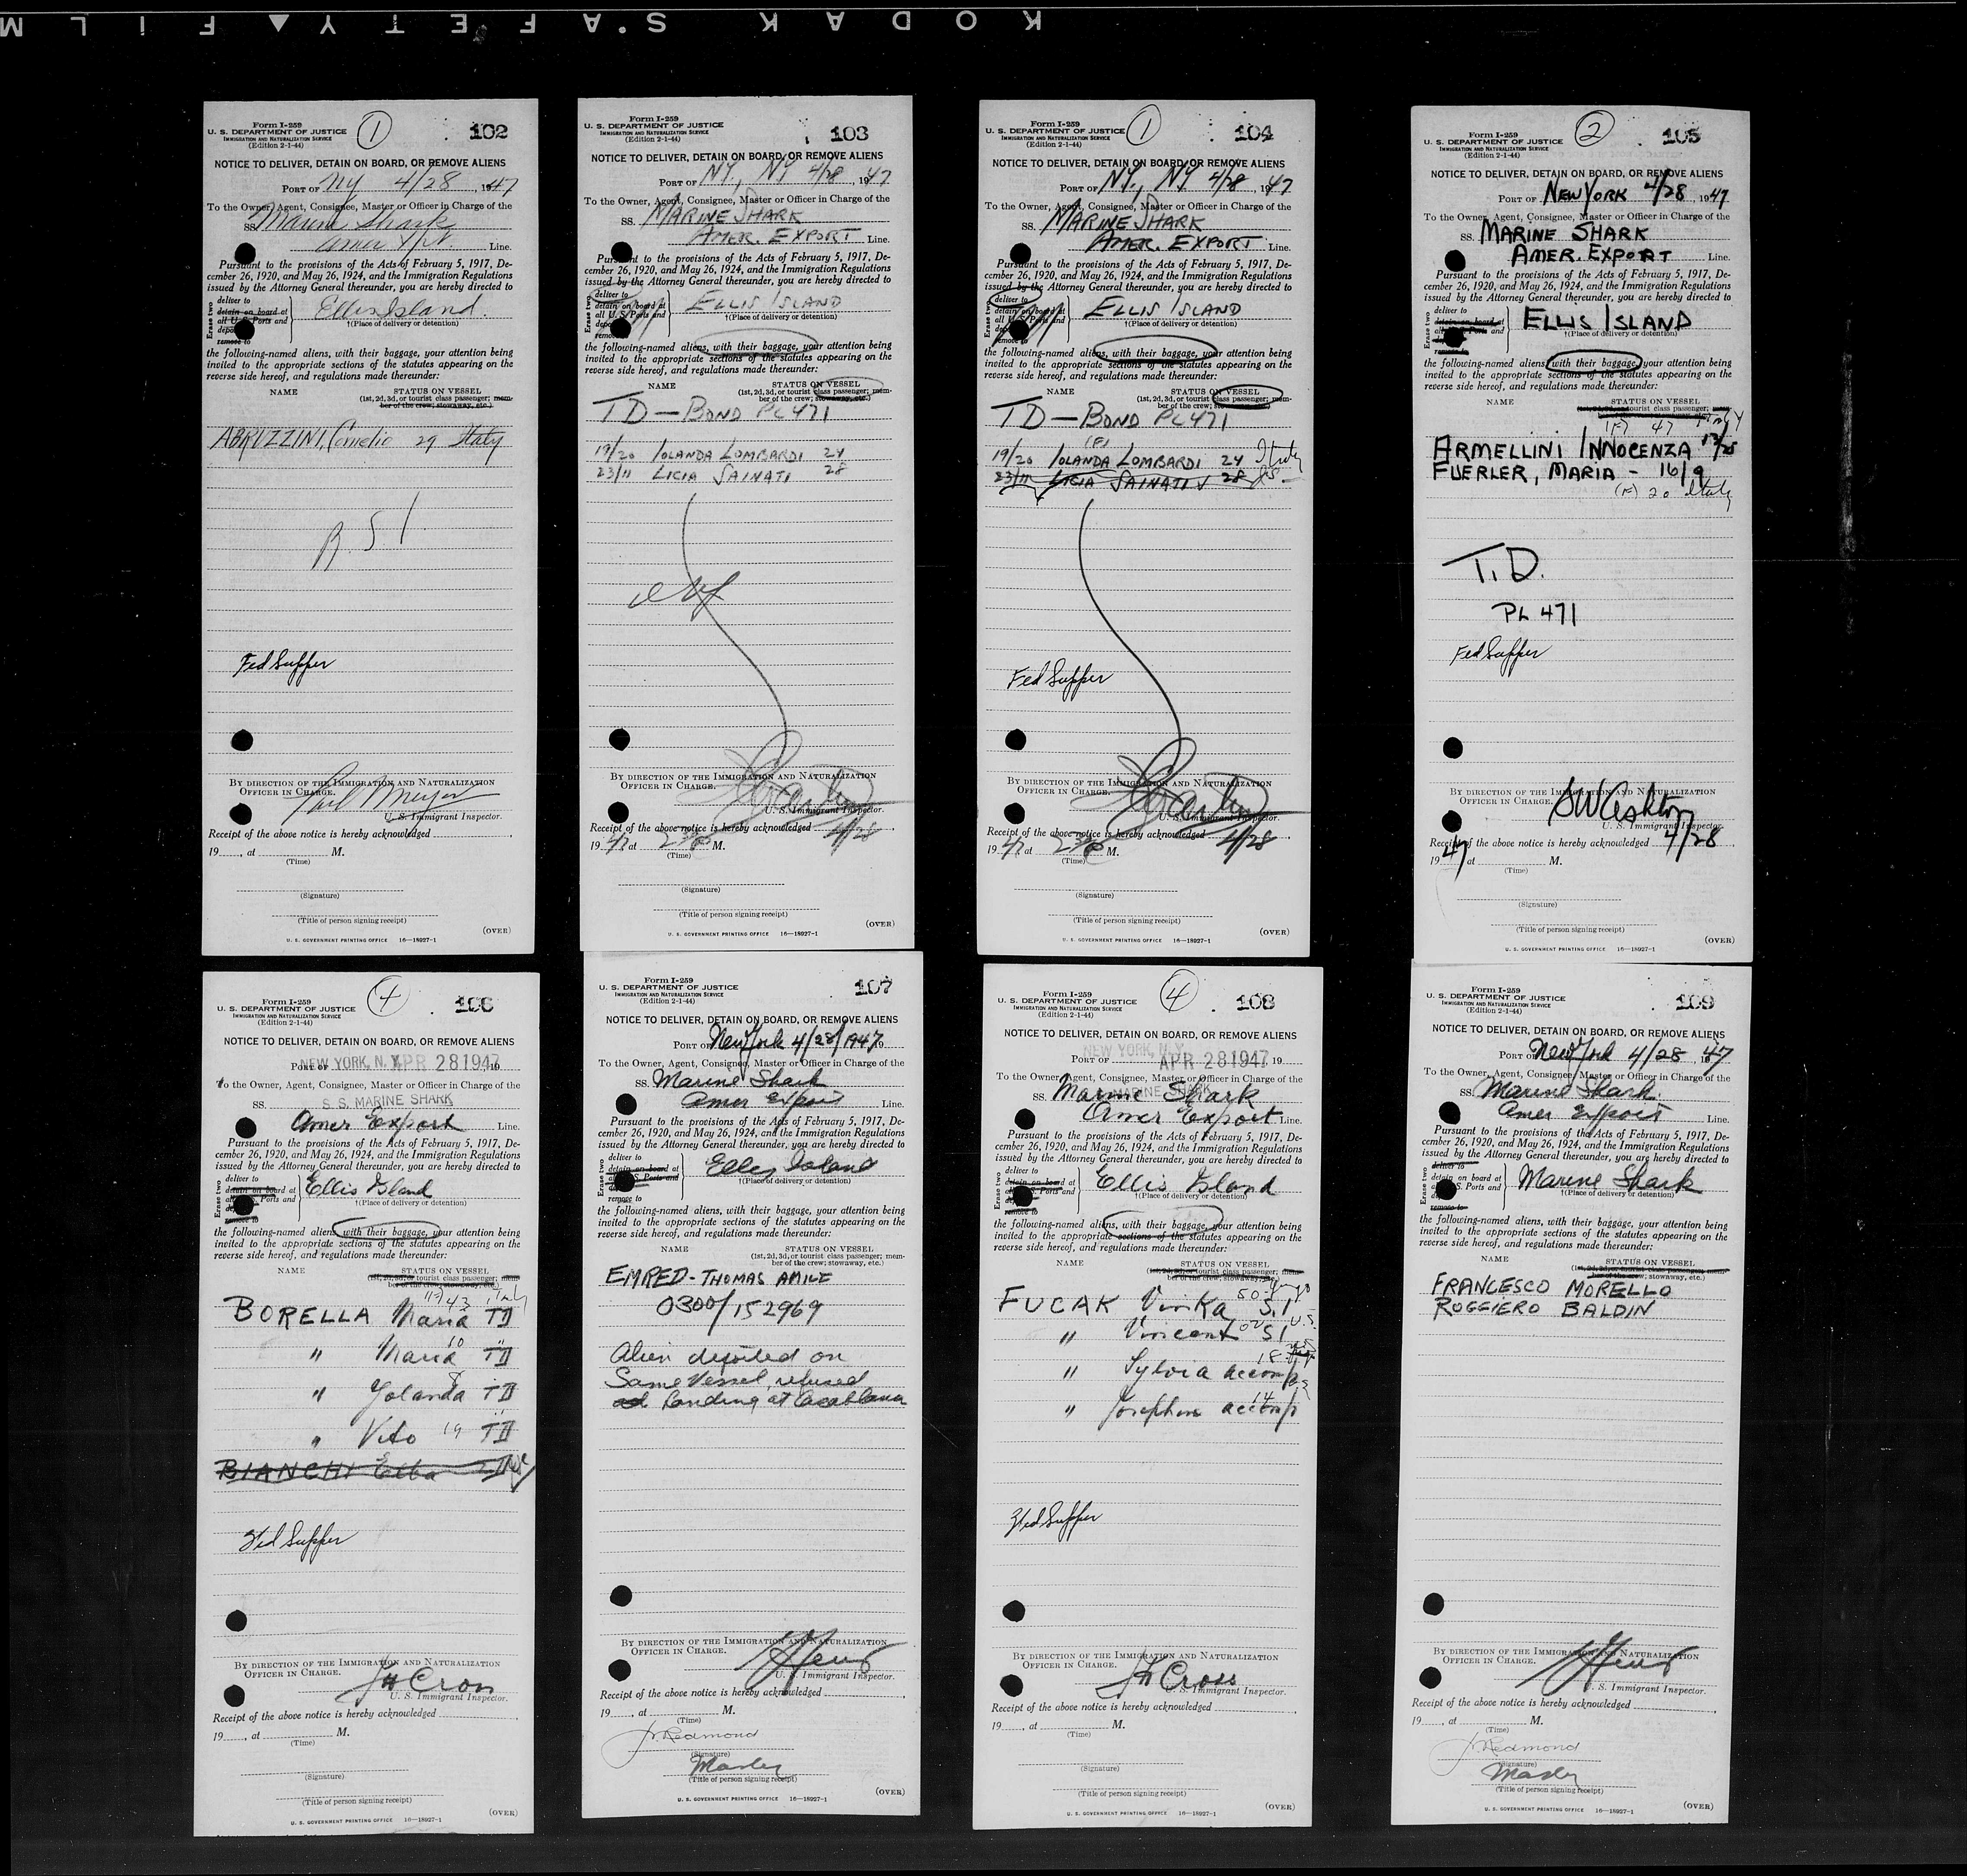 KODAK SAFETY FILM
Form I-259
U. S. DEPARTMENT OF JUSTICE
IMMIGRATION AND NATURALIZATION SERVICE
(Edition 2-1-44)
1
102
NOTICE TO DELIVER, DETAIN ON BOARD, OR REMOVE ALIENS
PORT OF NY 4/28, 1947
To the Owner, Agent, Consignee, Master or Officer in Charge of the
SS. Marine Shark
Amer Line.
Pursuant to the provisions of the Acts of February 5, 1917, De-
cember 26, 1920, and May 26, 1924, and the Immigration Regulations
issued by the Attorney General thereunder, you are hereby directed to
Erase two
deliver to
detain on board at
all U. S. Ports and
remove to
Ellis Island.
†(Place of delivery or detention)
the following-named aliens, with their baggage, your attention being
invited to the appropriate sections of the statutes appearing on the
reverse side hereof, and regulations made thereunder:
NAME
STATUS ON VESSEL
(1st, 2d, 3d, or tourist class passenger; mem-
ber of the crew; stowaway, etc.)
ABRUZZINI, 29 Italy
Fed Supper
BY DIRECTION OF THE IMMIGRATION AND NATURALIZATION
OFFICER IN CHARGE.
U. S. Immigrant Inspector.
Receipt of the above notice is hereby acknowledged
19 , at M.
(Time)
(Signature)
(Title of person signing receipt)
(OVER)
U. S. GOVERNMENT PRINTING OFFICE 16—18927-1
Form I-259
U. S. DEPARTMENT OF JUSTICE
IMMIGRATION AND NATURALIZATION SERVICE
(Edition 2-1-44)
103
NOTICE TO DELIVER, DETAIN ON BOARD, OR REMOVE ALIENS
PORT OF NY., NY 4/28, 1947
To the Owner, Agent, Consignee, Master or Officer in Charge of the
SS. MARINE SHARK
AMER. EXPORT Line.
Pursuant to the provisions of the Acts of February 5, 1917, De-
cember 26, 1920, and May 26, 1924, and the Immigration Regulations
issued by the Attorney General thereunder, you are hereby directed to
Erase two
deliver to
detain on board at
all U. S. Ports and
remove to
ELLIS ISLAND
†(Place of delivery or detention)
the following-named aliens, with their baggage, your attention being
invited to the appropriate sections of the statutes appearing on the
reverse side hereof, and regulations made thereunder:
NAME
STATUS ON VESSEL
(1st, 2d, 3d, or tourist class passenger; mem-
ber of the crew; stowaway, etc.)
TD — BOND PL 471
19/20 IOLANDA LOMBARDI 24
23/11 LICIA SAINATI 28
BY DIRECTION OF THE IMMIGRATION AND NATURALIZATION
OFFICER IN CHARGE.
U. S. Immigrant Inspector.
Receipt of the above notice is hereby acknowledged 4/28
1947 at M.
(Time)
(Signature)
(Title of person signing receipt)
(OVER)
U. S. GOVERNMENT PRINTING OFFICE 16—18927-1
Form I-259
U. S. DEPARTMENT OF JUSTICE
IMMIGRATION AND NATURALIZATION SERVICE
(Edition 2-1-44)
1
104
NOTICE TO DELIVER, DETAIN ON BOARD, OR REMOVE ALIENS
PORT OF NY., NY 4/28, 1947
To the Owner, Agent, Consignee, Master or Officer in Charge of the
SS. MARINE SHARK
AMER. EXPORT Line.
Pursuant to the provisions of the Acts of February 5, 1917, De-
cember 26, 1920, and May 26, 1924, and the Immigration Regulations
issued by the Attorney General thereunder, you are hereby directed to
Erase two
deliver to
detain on board at
all U. S. Ports and
remove to
ELLIS ISLAND
†(Place of delivery or detention)
the following-named aliens, with their baggage, your attention being
invited to the appropriate sections of the statutes appearing on the
reverse side hereof, and regulations made thereunder:
NAME
STATUS ON VESSEL
(1st, 2d, 3d, or tourist class passenger; mem-
ber of the crew; stowaway, etc.)
TD — BOND PL 471
(F)
19/20 IOLANDA LOMBARDI 24 Italy
23/11 LICIA SAINATI 28
Fed Supper
BY DIRECTION OF THE IMMIGRATION AND NATURALIZATION
OFFICER IN CHARGE.
U. S. Immigrant Inspector.
Receipt of the above notice is hereby acknowledged 4/28
1947 at M.
(Time)
(Signature)
(Title of person signing receipt)
(OVER)
U. S. GOVERNMENT PRINTING OFFICE 16—18927-1
Form I-259
U. S. DEPARTMENT OF JUSTICE
IMMIGRATION AND NATURALIZATION SERVICE
(Edition 2-1-44)
2
105
NOTICE TO DELIVER, DETAIN ON BOARD, OR REMOVE ALIENS
PORT OF NEW YORK 4/28, 1947
To the Owner, Agent, Consignee, Master or Officer in Charge of the
SS. MARINE SHARK
AMER. EXPORT Line.
Pursuant to the provisions of the Acts of February 5, 1917, De-
cember 26, 1920, and May 26, 1924, and the Immigration Regulations
issued by the Attorney General thereunder, you are hereby directed to
Erase two
deliver to
detain on board at
ELLIS ISLAND
†(Place of delivery or detention)
the following-named aliens, with their baggage, your attention being
invited to the appropriate sections of the statutes appearing on the
reverse side hereof, and regulations made thereunder:
NAME
STATUS ON VESSEL
(1st, 2d, 3d, or tourist class passenger;
(F) 47 Italy
ARMELLINI INNOCENZA
FUERLER, MARIA - 16/9
(F) 20 Italy
T.D.
PL 471
Fed Supper
BY DIRECTION OF THE IMMIGRATION AND NATURALIZATION
OFFICER IN CHARGE. SW Ashton
U. S. Immigrant Inspector.
Receipt of the above notice is hereby acknowledged 4/28
1947 at M.
(Time)
(Signature)
(Title of person signing receipt)
(OVER)
U. S. GOVERNMENT PRINTING OFFICE 16—18927-1
Form I-259
U. S. DEPARTMENT OF JUSTICE
IMMIGRATION AND NATURALIZATION SERVICE
(Edition 2-1-44)
4
106
NOTICE TO DELIVER, DETAIN ON BOARD, OR REMOVE ALIENS
PORT OF NEW YORK, N.Y. APR 28 1947 19
To the Owner, Agent, Consignee, Master or Officer in Charge of the
SS. S. S. MARINE SHARK
Amer Export Line.
Pursuant to the provisions of the Acts of February 5, 1917, De-
cember 26, 1920, and May 26, 1924, and the Immigration Regulations
issued by the Attorney General thereunder, you are hereby directed to
Erase two
deliver to
detain on board at
all U. S. Ports and
remove to
Ellis Island
†(Place of delivery or detention)
the following-named aliens, with their baggage, your attention being
invited to the appropriate sections of the statutes appearing on the
reverse side hereof, and regulations made thereunder:
NAME
STATUS ON VESSEL
(1st, 2d, 3d, or tourist class passenger; mem-
ber of the crew; stowaway, etc.)
(F) 43 Italy
BORELLA Maria TD
" Maria 10 TD
" Yolanda 8 TD
" Vito 14 TD
BIANCHI Elba TD
Fed Supper
BY DIRECTION OF THE IMMIGRATION AND NATURALIZATION
OFFICER IN CHARGE. JH Cross
U. S. Immigrant Inspector.
Receipt of the above notice is hereby acknowledged
19 , at M.
(Time)
(Signature)
(Title of person signing receipt)
(OVER)
U. S. GOVERNMENT PRINTING OFFICE 16—18927-1
Form I-259
U. S. DEPARTMENT OF JUSTICE
IMMIGRATION AND NATURALIZATION SERVICE
(Edition 2-1-44)
107
NOTICE TO DELIVER, DETAIN ON BOARD, OR REMOVE ALIENS
PORT OF New York 4/28/1947
To the Owner, Agent, Consignee, Master or Officer in Charge of the
SS. Marine Shark
Amer Export Line.
Pursuant to the provisions of the Acts of February 5, 1917, De-
cember 26, 1920, and May 26, 1924, and the Immigration Regulations
issued by the Attorney General thereunder, you are hereby directed to
Erase two
deliver to
detain on board at
S. Ports and
remove to
Ellis Island
†(Place of delivery or detention)
the following-named aliens, with their baggage, your attention being
invited to the appropriate sections of the statutes appearing on the
reverse side hereof, and regulations made thereunder:
NAME
STATUS ON VESSEL
(1st, 2d, 3d, or tourist class passenger; mem-
ber of the crew; stowaway, etc.)
EMRED - THOMAS AMILE
0300/152969
Alien deported on
Same Vessel, refused
landing at Casablanca
BY DIRECTION OF THE IMMIGRATION AND NATURALIZATION
OFFICER IN CHARGE.
U. S. Immigrant Inspector.
Receipt of the above notice is hereby acknowledged
19 , at M.
(Time)
J. Redmond
(Signature)
Master
(Title of person signing receipt)
(OVER)
U. S. GOVERNMENT PRINTING OFFICE 16—18927-1
Form I-259
U. S. DEPARTMENT OF JUSTICE
IMMIGRATION AND NATURALIZATION SERVICE
(Edition 2-1-44)
4
108
NOTICE TO DELIVER, DETAIN ON BOARD, OR REMOVE ALIENS
NEW YORK, N.Y.
PORT OF APR 28 1947 19
To the Owner, Agent, Consignee, Master or Officer in Charge of the
SS. Marine Shark
MARINE SHARK
Amer Export Line.
Pursuant to the provisions of the Acts of February 5, 1917, De-
cember 26, 1920, and May 26, 1924, and the Immigration Regulations
issued by the Attorney General thereunder, you are hereby directed to
Erase two
deliver to
detain on board at
S. Ports and
remove to
Ellis Island
†(Place of delivery or detention)
the following-named aliens, with their baggage, your attention being
invited to the appropriate sections of the statutes appearing on the
reverse side hereof, and regulations made thereunder:
NAME
STATUS ON VESSEL
(1st, 2d, 3d, or tourist class passenger; mem-
ber of the crew; stowaway, etc.)
FUCAK Vinka 50 S.I
" Vincent SI U.S.
" Sylvia 18 accomp
" Josephine 14 accomp
Fed Supper
BY DIRECTION OF THE IMMIGRATION AND NATURALIZATION
OFFICER IN CHARGE. JH Cross
U. S. Immigrant Inspector.
Receipt of the above notice is hereby acknowledged
19 , at M.
(Time)
(Signature)
(Title of person signing receipt)
(OVER)
U. S. GOVERNMENT PRINTING OFFICE 16—18927-1
Form I-259
U. S. DEPARTMENT OF JUSTICE
IMMIGRATION AND NATURALIZATION SERVICE
(Edition 2-1-44)
109
NOTICE TO DELIVER, DETAIN ON BOARD, OR REMOVE ALIENS
PORT OF New York 4/28 1947
To the Owner, Agent, Consignee, Master or Officer in Charge of the
SS. Marine Shark
Amer Export Line.
Pursuant to the provisions of the Acts of February 5, 1917, De-
cember 26, 1920, and May 26, 1924, and the Immigration Regulations
issued by the Attorney General thereunder, you are hereby directed to
Erase two
deliver to
detain on board at
S. Ports and
remove to
Marine Shark
†(Place of delivery or detention)
the following-named aliens, with their baggage, your attention being
invited to the appropriate sections of the statutes appearing on the
reverse side hereof, and regulations made thereunder:
NAME
STATUS ON VESSEL
(1st, 2d, 3d, or tourist class passenger; mem-
ber of the crew; stowaway, etc.)
FRANCESCO MORELLO
RUGGIERO BALDIN
BY DIRECTION OF THE IMMIGRATION AND NATURALIZATION
OFFICER IN CHARGE.
U. S. Immigrant Inspector.
Receipt of the above notice is hereby acknowledged
19 , at M.
(Time)
J. Redmond
(Signature)
Master
(Title of person signing receipt)
(OVER)
U. S. GOVERNMENT PRINTING OFFICE 16—18927-1